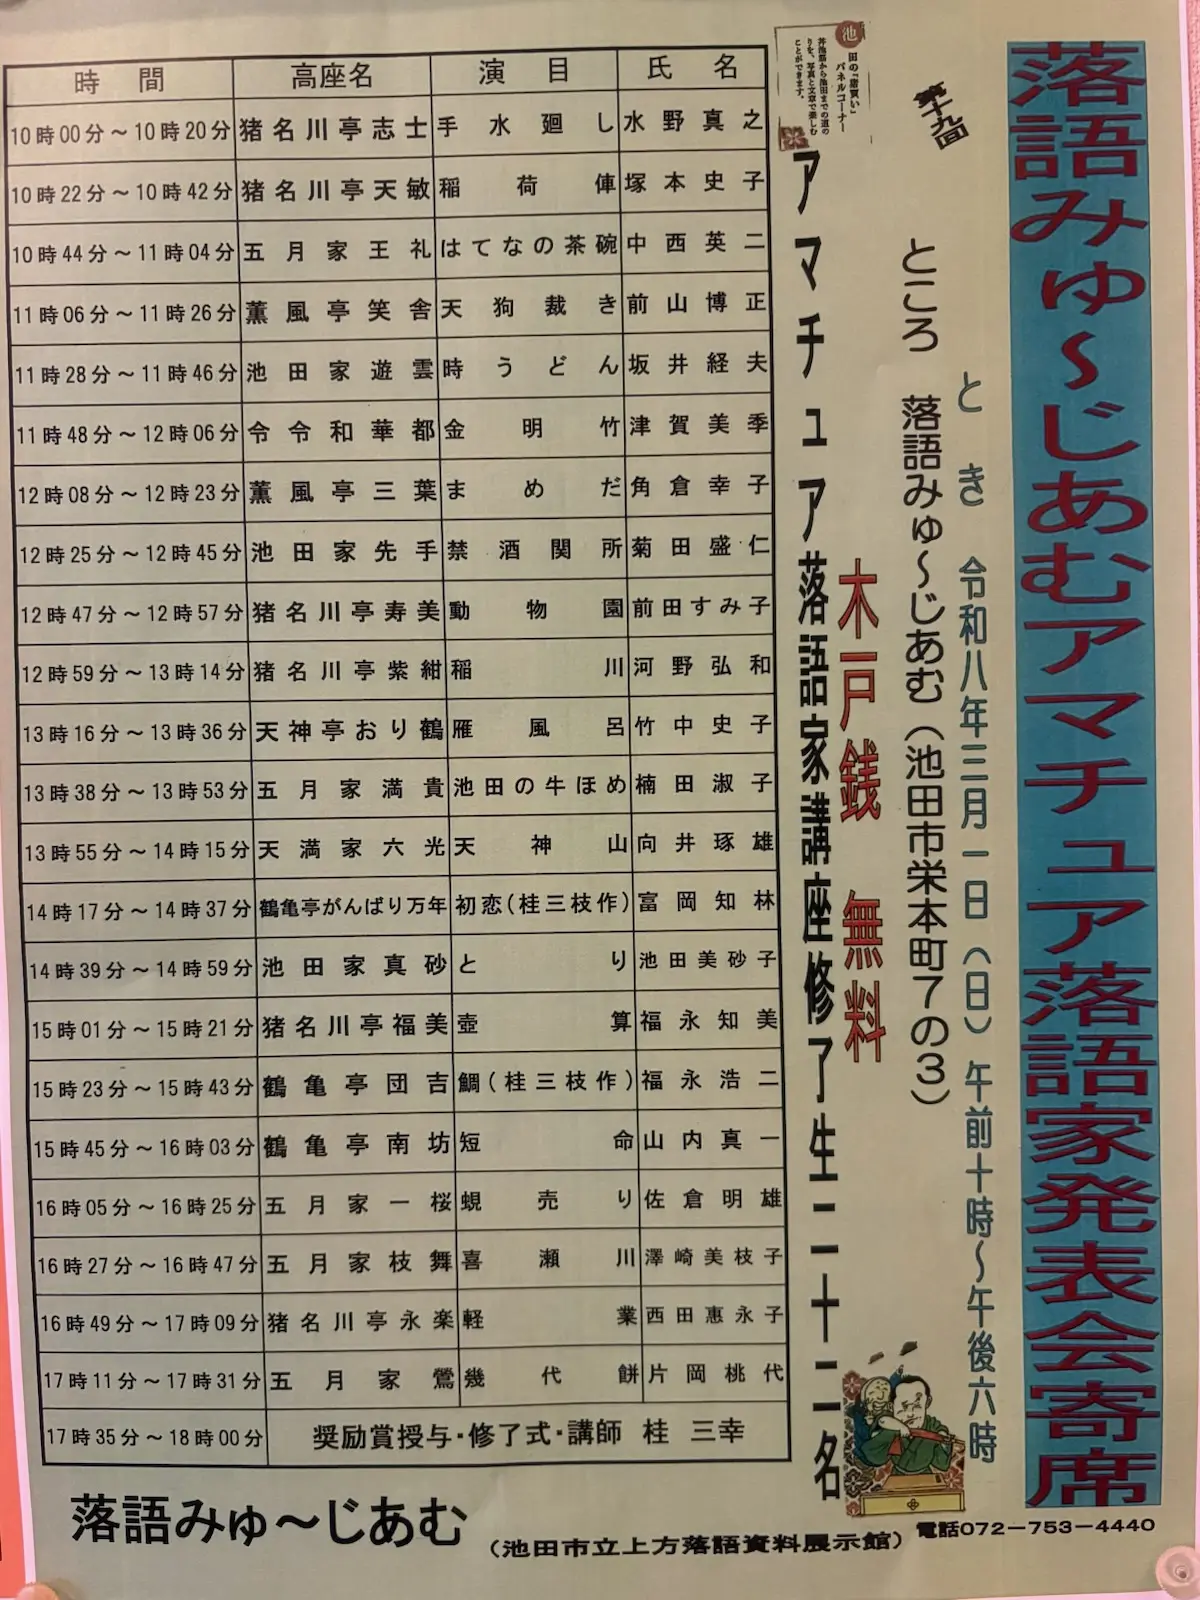 落語みゅ〜じあむアマチュア落語家発表会寄席
第十九回
とき 令和八年三月一日（日）午前十時〜午後六時
ところ 落語みゅ〜じあむ（池田市栄本町7の3）
木戸銭 無料
アマチュア落語家講座修了生二十二名
池田の「唐賃い」
パネルコーナー
丼池筋から池田までの道の
りを、写真と文章で楽しむ
ことができます。
時間 高座名 演目 氏名
10時00分〜10時20分 猪名川亭志士 手水廻し 水野真之
10時22分〜10時42分 猪名川亭天敏 稲荷俥 塚本史子
10時44分〜11時04分 五月家王礼 はてなの茶碗 中西英二
11時06分〜11時26分 薫風亭笑舎 天狗裁き 前山博正
11時28分〜11時46分 池田家遊雲 時うどん 坂井経夫
11時48分〜12時06分 令令和華都 金明竹 津賀美季
12時08分〜12時23分 薫風亭三葉 まめだ 角倉幸子
12時25分〜12時45分 池田家先手 禁酒関所 菊田盛仁
12時47分〜12時57分 猪名川亭寿美 動物園 前田すみ子
12時59分〜13時14分 猪名川亭紫紺 稲川 河野弘和
13時16分〜13時36分 天神亭おり鶴 雁風呂 竹中史子
13時38分〜13時53分 五月家満貴 池田の牛ほめ 楠田淑子
13時55分〜14時15分 天満家六光 天神山 向井琢雄
14時17分〜14時37分 鶴亀亭がんばり万年 初恋（桂三枝作） 富岡知林
14時39分〜14時59分 池田家真砂 とり 池田美砂子
15時01分〜15時21分 猪名川亭福美 壺算 福永知美
15時23分〜15時43分 鶴亀亭団吉 鯛（桂三枝作） 福永浩二
15時45分〜16時03分 鶴亀亭南坊 短命 山内真一
16時05分〜16時25分 五月家一桜 蜆売り 佐倉明雄
16時27分〜16時47分 五月家枝舞 喜瀬川 澤崎美枝子
16時49分〜17時09分 猪名川亭永楽 軽業 西田惠永子
17時11分〜17時31分 五月家鶯 幾代餅 片岡桃代
17時35分〜18時00分 奨励賞授与・修了式・講師 桂 三幸
落語みゅ〜じあむ
（池田市立上方落語資料展示館）
電話072－753－4440